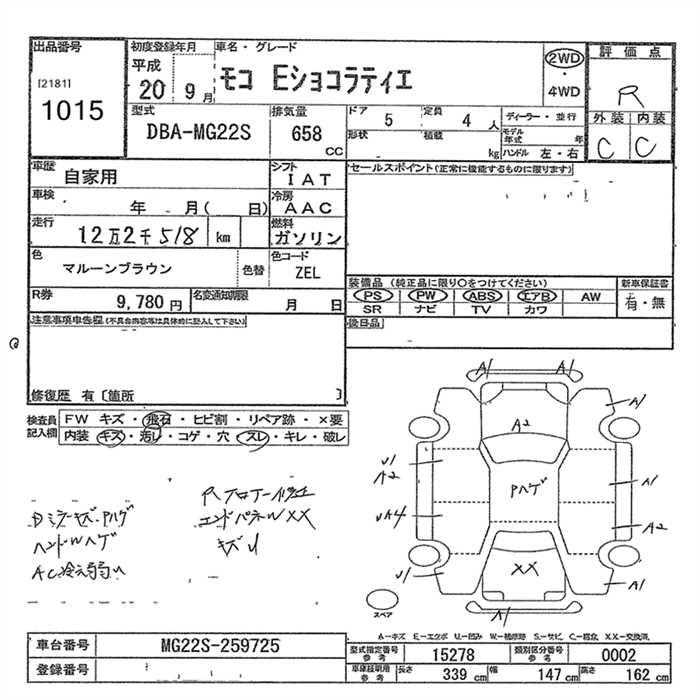 出品番号
[2181]
1015
初度登録年月
平成
20 9月
車名・グレード
モコ Eショコラティエ
2WD
・
4WD
評価点
R
外装 内装
C C
型式
DBA-MG22S
排気量
658
CC
ドア 5
定員 4 人
形状
積載
kg
ディーラー・並行
モデル年式 年
ハンドル 左・右
車歴
自家用
シフト
IAT
車検
年 月( 日)
冷房
AAC
走行
12万2千518 km
燃料
ガソリン
色
マルーンブラウン
色替
色コード
ZEL
R券
9,780 円
名変通知期限
月 日
セールスポイント(正常に機能するものに限ります)
装備品 (純正品に限り○をつけてください)
PS PW ABS エアB AW
SR ナビ TV カワ
新車保証書
有・無
後日品
注意事項申告欄(不具合内容等は具体的に記入して下さい)
修復歴 有〔箇所 〕
検査員
記入欄
FW キズ・飛石・ヒビ割・リペア跡・×要
内装 キズ・汚レ・コゲ・穴・スレ・キレ・破レ
ハンドルハゲ
AC冷え弱い
エンドパネルXX
キズU
A1 A1
A1
A2
U1
A2
Pハゲ
A1
UA4
A2
U1
XX
A1
A1
スペア
A-キズ E-エクボ U-凹み W-補修跡 S-サビ C-腐食 XX-交換済
車台番号
MG22S-259725
登録番号
型式指定番号
参考
15278
類別区分番号
参考
0002
車庫証明用
参考
長さ 339 cm
幅 147 cm
高さ 162 cm